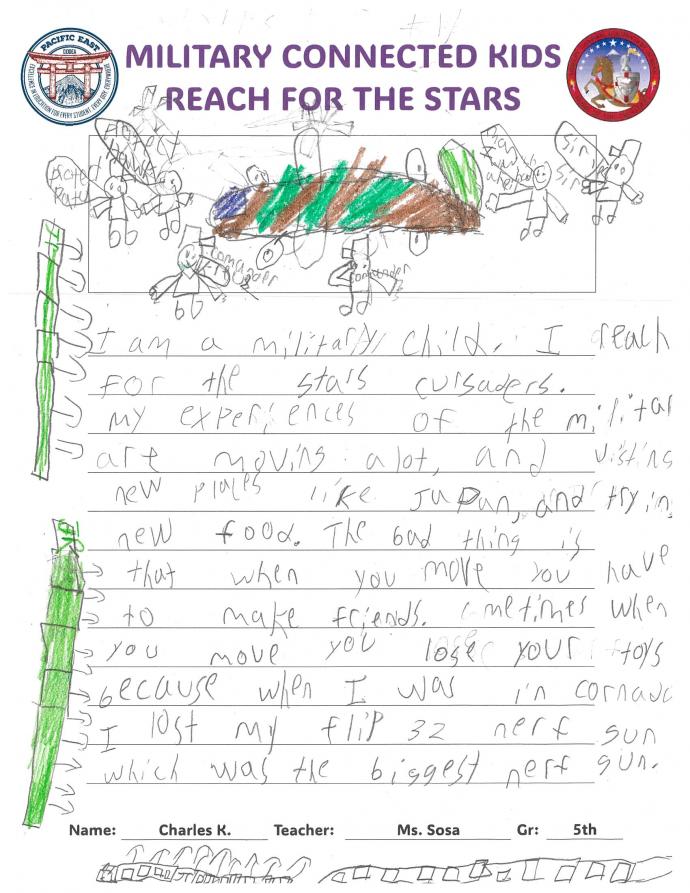 PACIFIC EAST
DODEA
EXCELLENCE IN EDUCATION FOR EVERY STUDENT, EVERY DAY, EVERYWHERE
MILITARY CONNECTED KIDS
REACH FOR THE STARS
Sir
Sir
comander
comander
I am a military child. I reach
for the stars cursaders.
my experiences of the militar
are moving alot, and visting
new places like Japan, and tryin
new food. The bad thing is
that when you move you have
to make friends. ometimes when
you move you lose your toys
because when I was in cornado
I lost my flip 32 nerf gun
which was the biggest nerf gun.
Name: Charles K. Teacher: Ms. Sosa Gr: 5th